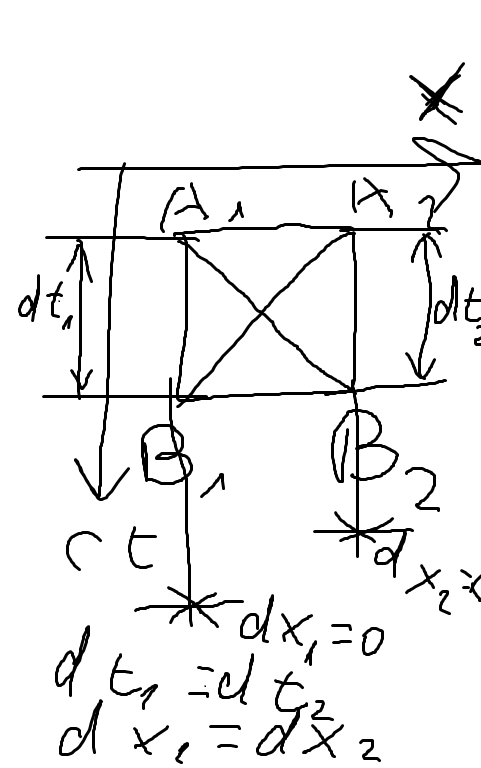 X
A₁ A₂
dt₁ dt₂
B₁ B₂
ct
dx₂=
dx₁=0
dt₁=dt₂
dx₁=dx₂